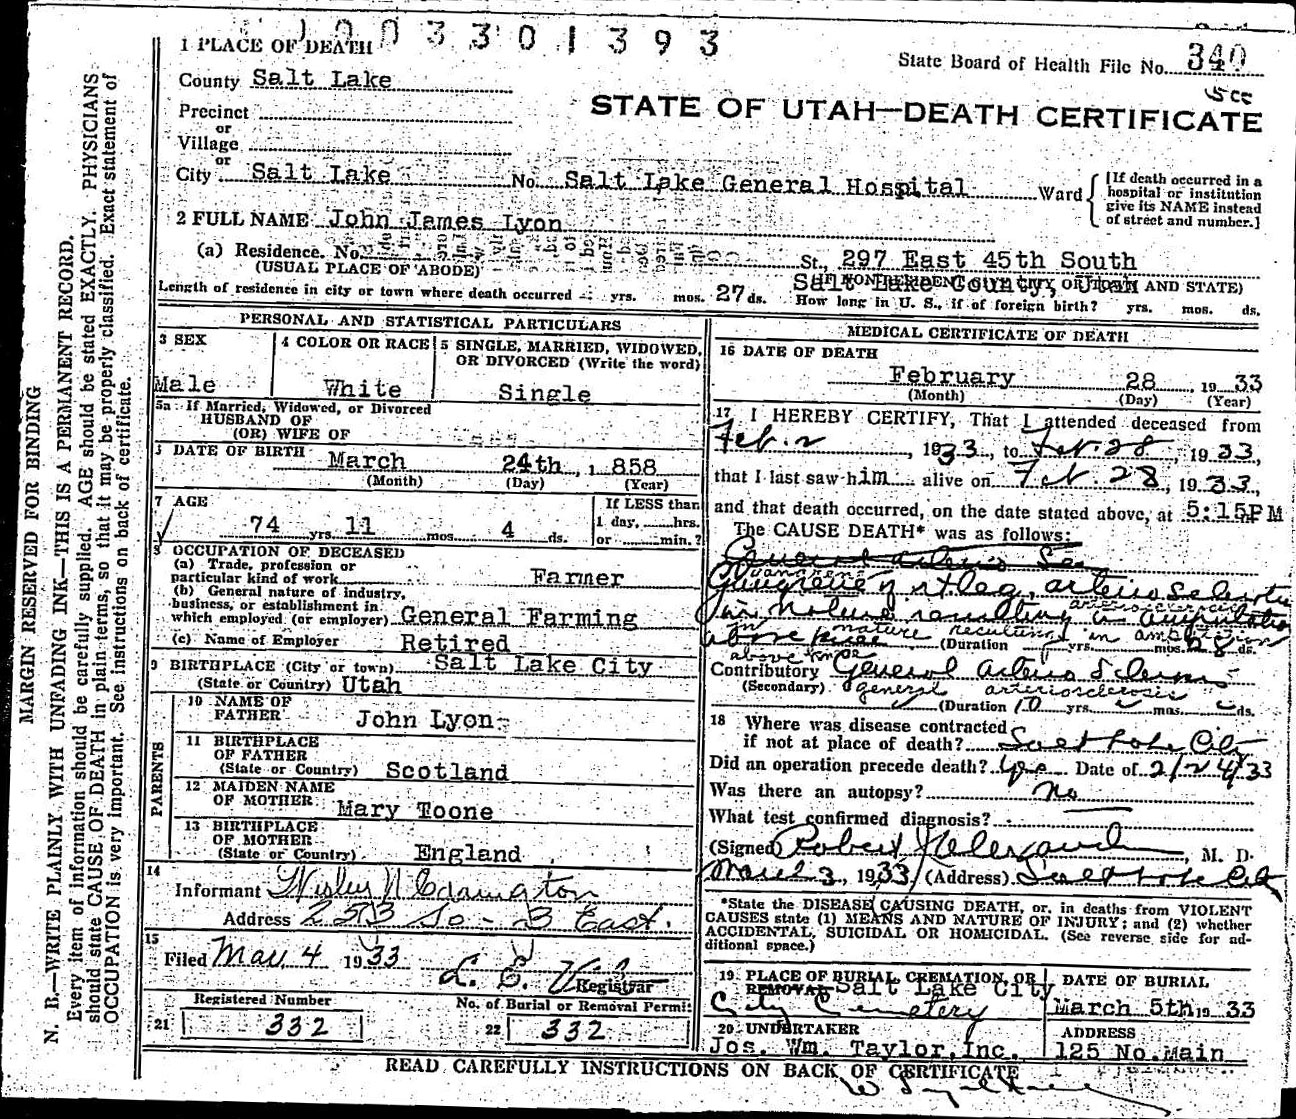 1003301393
1 PLACE OF DEATH
State Board of Health File No. 340
County Salt Lake
STATE OF UTAH—DEATH CERTIFICATE
Precinct
or
Village
or
City Salt Lake No. Salt Lake General Hospital Ward
[If death occurred in a hospital or institution give its NAME instead of street and number.]
2 FULL NAME John James Lyon
(a) Residence. No. St., 297 East 45th South
(USUAL PLACE OF ABODE) Salt Lake County, Utah
Length of residence in city or town where death occurred yrs. mos. 27 ds. How long in U. S., if of foreign birth? yrs. mos. ds.
PERSONAL AND STATISTICAL PARTICULARS
3 SEX
Male
4 COLOR OR RACE
White
5 SINGLE, MARRIED, WIDOWED, OR DIVORCED (Write the word)
Single
5a If Married, Widowed, or Divorced
HUSBAND OF
(OR) WIFE OF
DATE OF BIRTH March 24th, 1858
(Month) (Day) (Year)
7 AGE
74 yrs. 11 mos. 4 ds.
If LESS than
1 day, hrs.
or min.?
8 OCCUPATION OF DECEASED
(a) Trade, profession or
particular kind of work Farmer
(b) General nature of industry,
business, or establishment in
which employed (or employer) General Farming
(c) Name of Employer Retired
9 BIRTHPLACE (City or town) Salt Lake City
(State or Country) Utah
PARENTS
10 NAME OF
FATHER John Lyon
11 BIRTHPLACE
OF FATHER
(State or Country) Scotland
12 MAIDEN NAME
OF MOTHER Mary Toone
13 BIRTHPLACE
OF MOTHER
(State or Country) England
14
Informant
Address 2573 So - 3 East.
15
Filed Mar. 4 1933
Registrar
Registered Number
21 332
No. of Burial or Removal Permit
22 332
MEDICAL CERTIFICATE OF DEATH
16 DATE OF DEATH
February 28, 1933
(Month) (Day) (Year)
17 I HEREBY CERTIFY, That I attended deceased from
Feb. 2, 1933, to Feb. 28 1933,
that I last saw him alive on Feb. 28, 1933,
and that death occurred, on the date stated above, at 5:15PM
The CAUSE DEATH* was as follows:
Gangrene of rt leg, arterio sclerotic
gangrene arteriosclerosis
in nature resulting in amputation
in nature resulting in amputation
above knee (Duration yrs. mos. 28 ds.
above knee
Contributory General Arterio Sclerosis
(Secondary) general arteriosclerosis
(Duration 10 yrs. mos. ds.
18 Where was disease contracted
if not at place of death? Salt Lake City
Did an operation precede death? yes Date of 2/24/33
Was there an autopsy? no
What test confirmed diagnosis?
(Signed) Robert Alexander, M. D.
March 3, 1933 (Address) Salt Lake City
*State the DISEASE CAUSING DEATH, or, in deaths from VIOLENT
CAUSES state (1) MEANS AND NATURE OF INJURY; and (2) whether
ACCIDENTAL, SUICIDAL OR HOMICIDAL. (See reverse side for ad-
ditional space.)
19 PLACE OF BURIAL, CREMATION, OR
REMOVAL Salt Lake City
City Cemetery
DATE OF BURIAL
March 5th 19 33
20 UNDERTAKER
Jos. Wm. Taylor, Inc.
ADDRESS
125 No. Main
READ CAREFULLY INSTRUCTIONS ON BACK OF CERTIFICATE
MARGIN RESERVED FOR BINDING
N. B.—WRITE PLAINLY WITH UNFADING INK—THIS IS A PERMANENT RECORD.
Every item of information should be carefully supplied. AGE should be stated EXACTLY. PHYSICIANS
should state CAUSE OF DEATH in plain terms, so that it may be properly classified. Exact statement of
OCCUPATION is very important. See instructions on back of certificate.